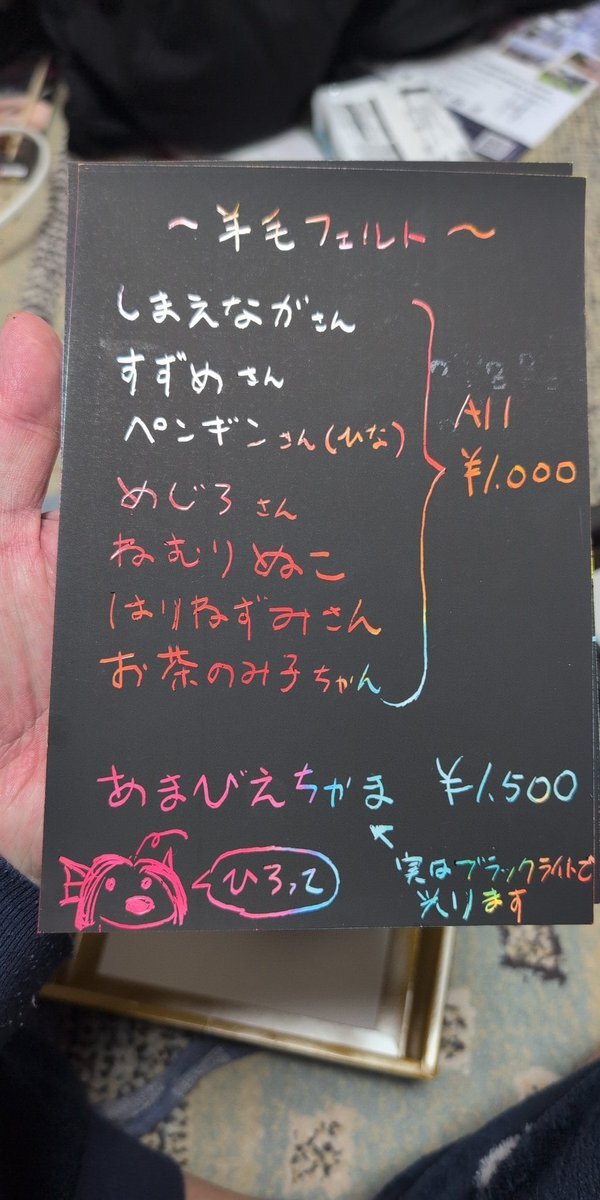 ～羊毛フェルト～
しまえながさん
すずめさん
ペンギンさん(ひな)
めじろさん
ねむりぬこ
はりねずみさん
お茶のみ子ちゃん
All
¥1.000
あまびえちかま ¥1.500
実はブラックライトで
光ります
ひろって